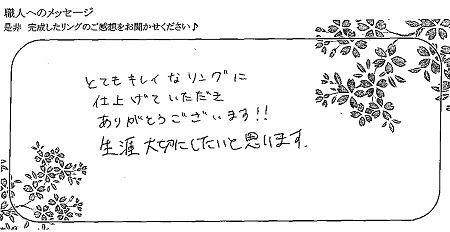 職人へのメッセージ
是非 完成したリングのご感想をお聞かせください♪
とてもキレイなリングに
仕上げていただき
ありがとうございます!!
生涯大切にしたいと思います.